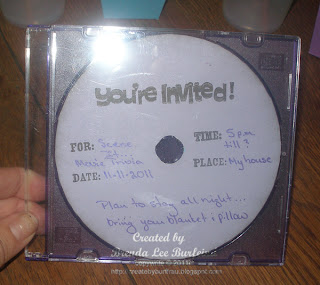 You're Invited!
FOR: Scene
It...
Movie Trivia
DATE: 11-11-2011
TIME: 5pm
till?
PLACE: My house
Plan to stay all night...
bring your blanket & pillow
Created by
Brenda Lee Burton
copyright © 2011